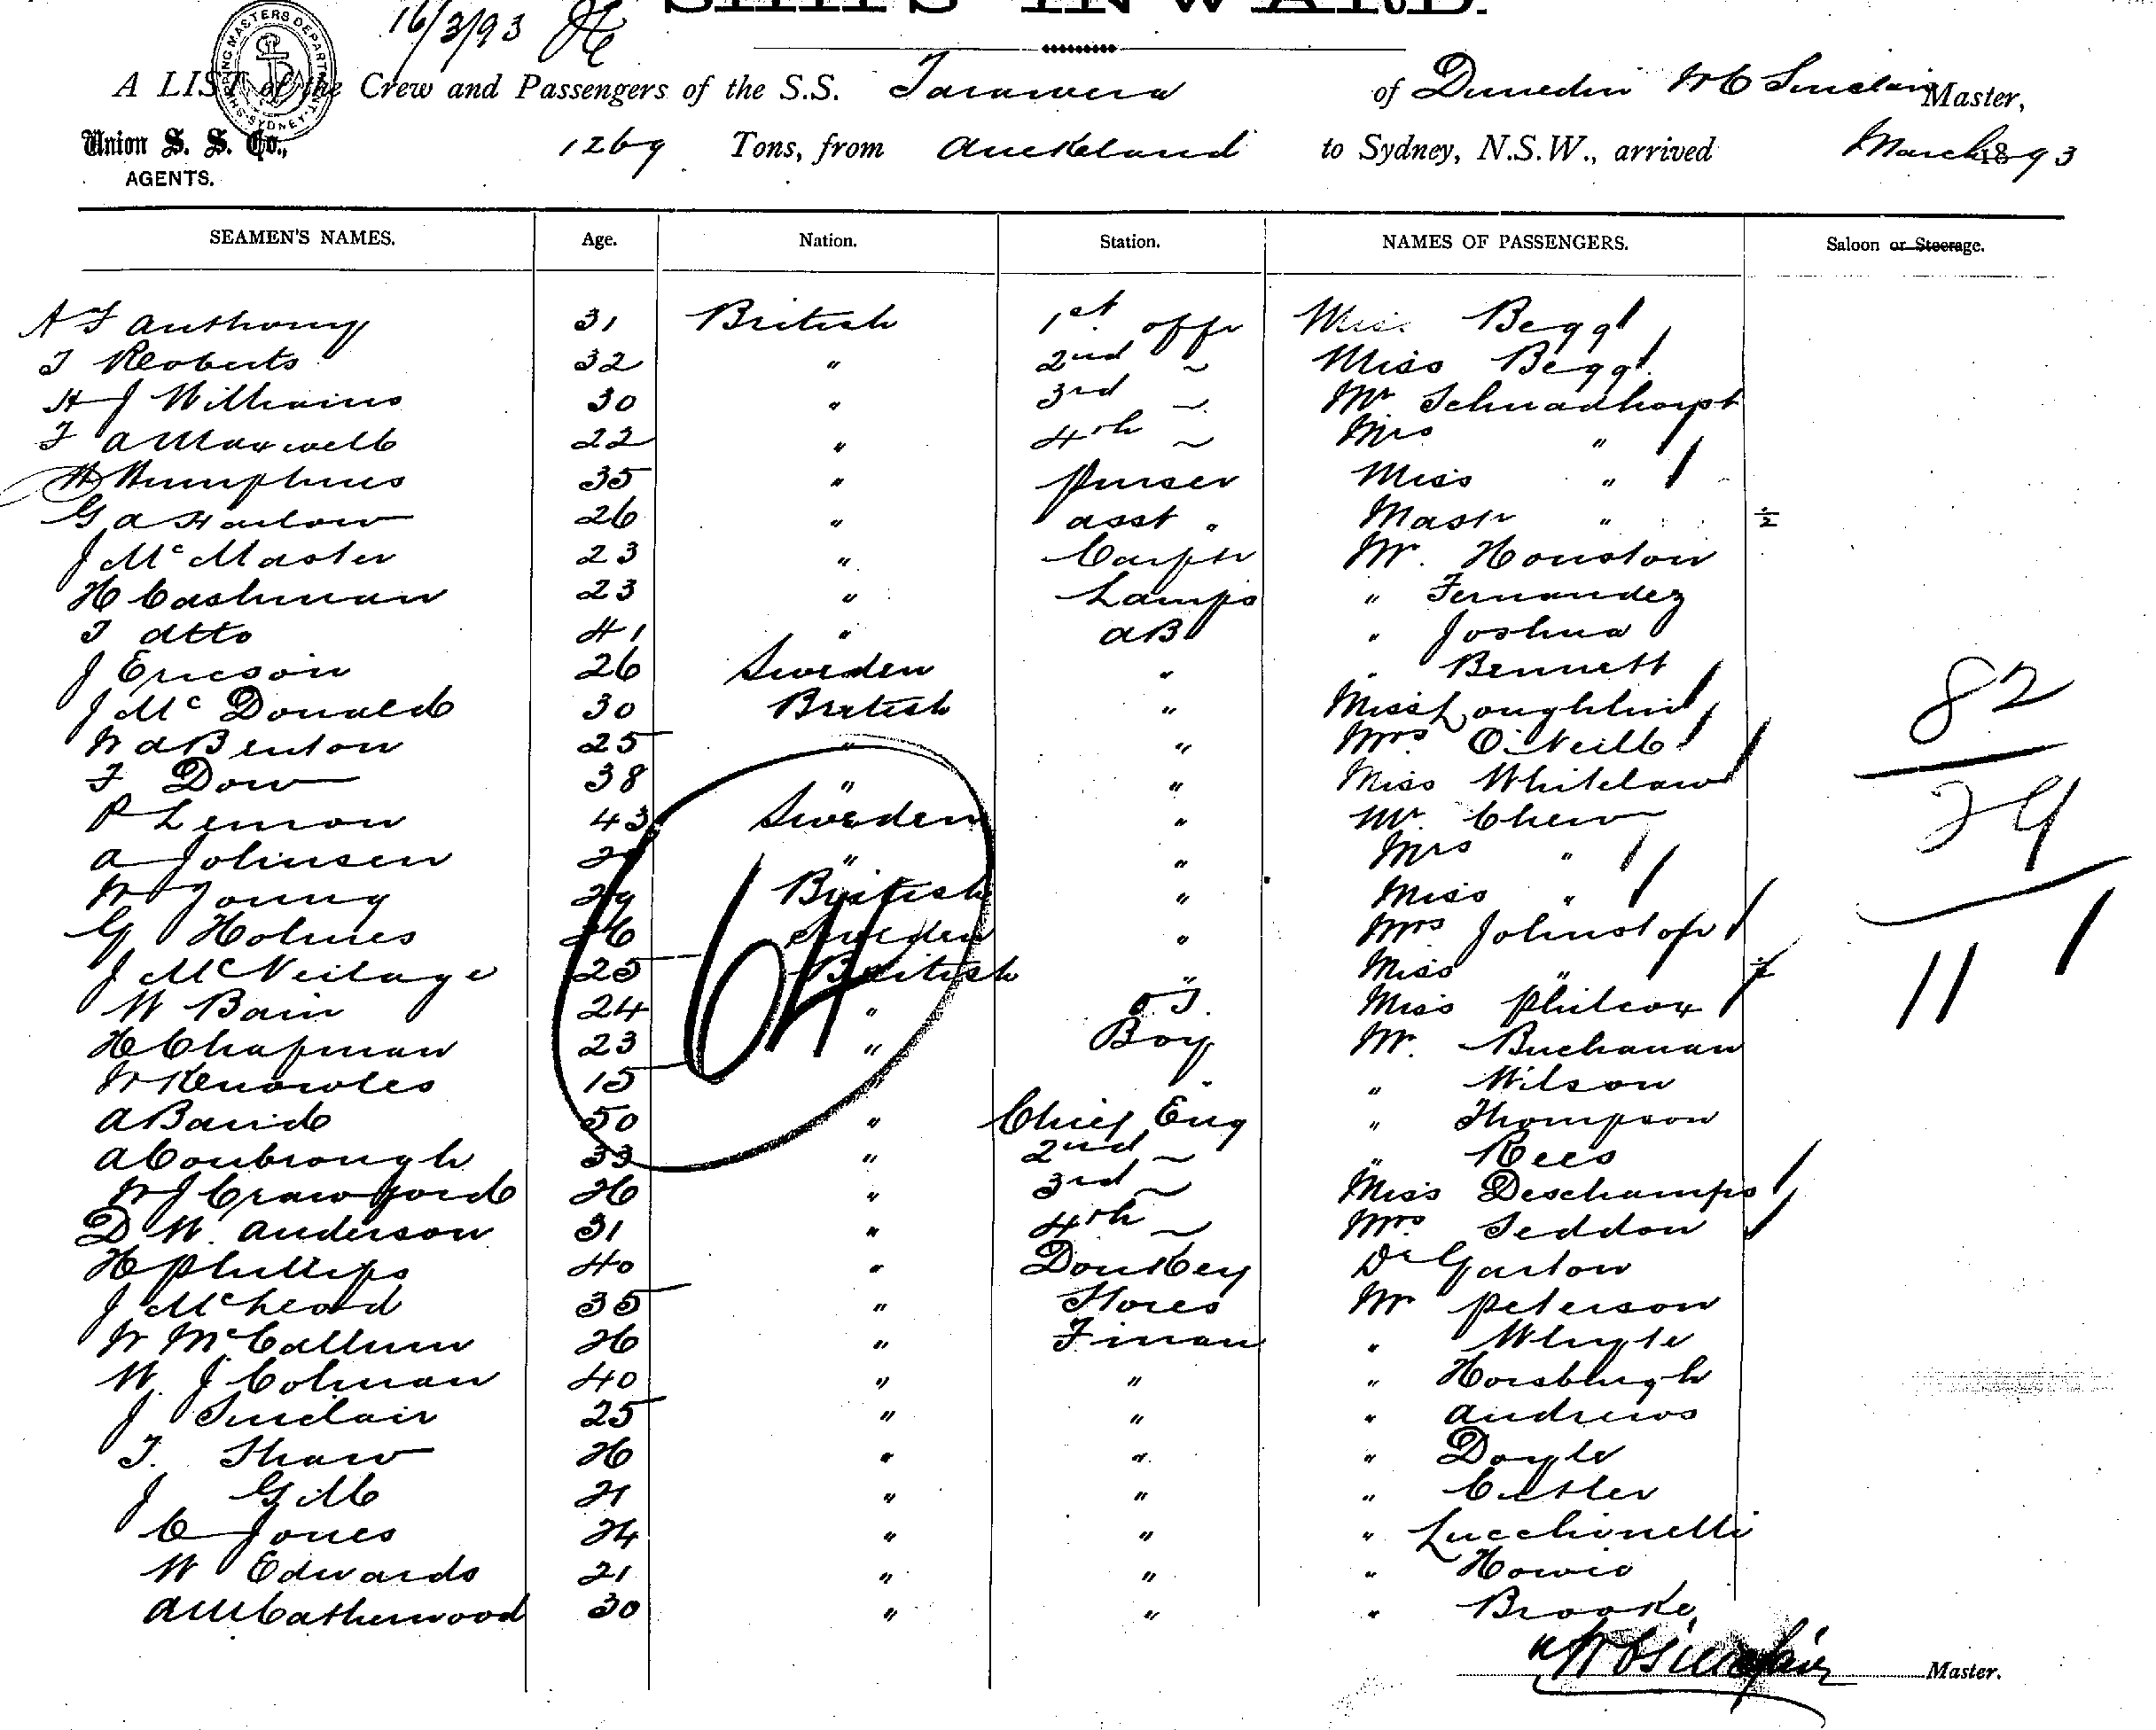 16/3/93
SHIPS INWARD.
SHIPPING MASTERS DEPARTMENT SYDNEY
A LIST of the Crew and Passengers of the S.S. Tarawera of Dunedin W C Sinclair Master,
Union S. S. Co., AGENTS. 1269 Tons, from Auckland to Sydney, N.S.W., arrived March 1893
SEAMEN'S NAMES. Age. Nation. Station. NAMES OF PASSENGERS. Saloon or Steerage.
A F Anthony 31 British 1st offr Begg
T Roberts 32 " 2nd ~ Miss Begg
H J Williams 30 " 3rd ~ Mr Schnadhorst
F A Maxwell 22 " 4th ~ Mrs "
H Humphries 35 " Purser Miss "
G A Harlow 26 " asst " Mastr " ½
J McMaster 23 " Carptr Mr. Houston
H Cashman 23 " Lamps " Fernandez
T Atto 41 " AB " Joshua
J Ericson 26 Sweden " " Bennett
J McDonald 30 British " Miss Loughlin
W A Benton 25 " " Mrs O'Neill
F Dow 38 " " Miss Whitelaw
P Lemon 43 Sweden " Mr. Chew
A Johnsen " " Mrs "
W Young 29 British " Miss "
G Holmes 26 Sweden " Mrs Johnston
J McNeilage 25 British " Miss " ½
W Bain 24 " O.S. Miss Philcox
H Chapman 23 " Boy Mr. Buchanan
W Knowles 15 " " Wilson
A Baird 50 " Chief Eng " Thompson
A Coubrough 33 " 2nd ~ " Rees
W J Crawford 26 " 3rd ~ Miss Deschamps
D W. Anderson 31 " 4th ~ Mrs Seddon
H Phillips 40 " Donkey Dr Garlow
J McLeod 35 " Stores Mr Peterson
W McCallum 26 " Firman " Whyte
W. J Colman 40 " " " Horsburgh
J Sinclair 25 " " " Andrews
T. Shaw 26 " " " Doyle
J Gill 21 " " " Cutler
C Jones 24 " " " Lucchinelli
W Edwards 21 " " " Howie
A M Catherwood 30 " " " Brooke
64
82
29
11 1
W C Sinclair Master.